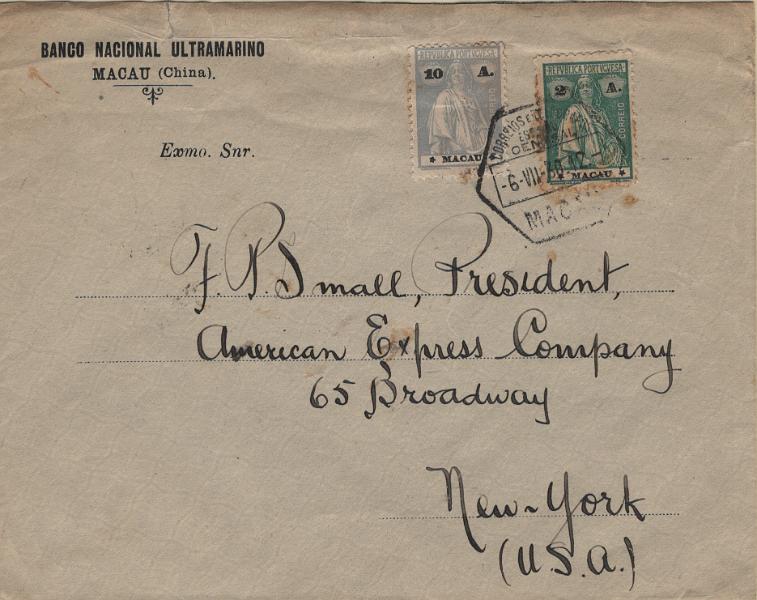 BANCO NACIONAL ULTRAMARINO
MACAU (China).
Exmo. Snr.
REPVBLICA PORTVGVESA
10 A.
MACAU
REPVBLICA PORTVGVESA
2 A.
CORREIO
MACAU
CORREIOS E
-6-VII-
MACAU
F. P. Small, President,
American Express Company
65 Broadway
New-York
(U.S.A.)